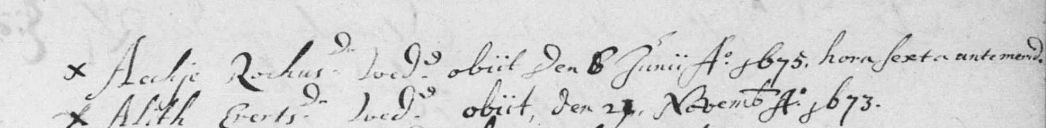 x Aeltje Rochus dr wed.e obiit den 8 Junii A.o 1675. hora sexta antemerid.
x Alith Everts dr wed.e obiit, den 21. Novemb A.o 1673.